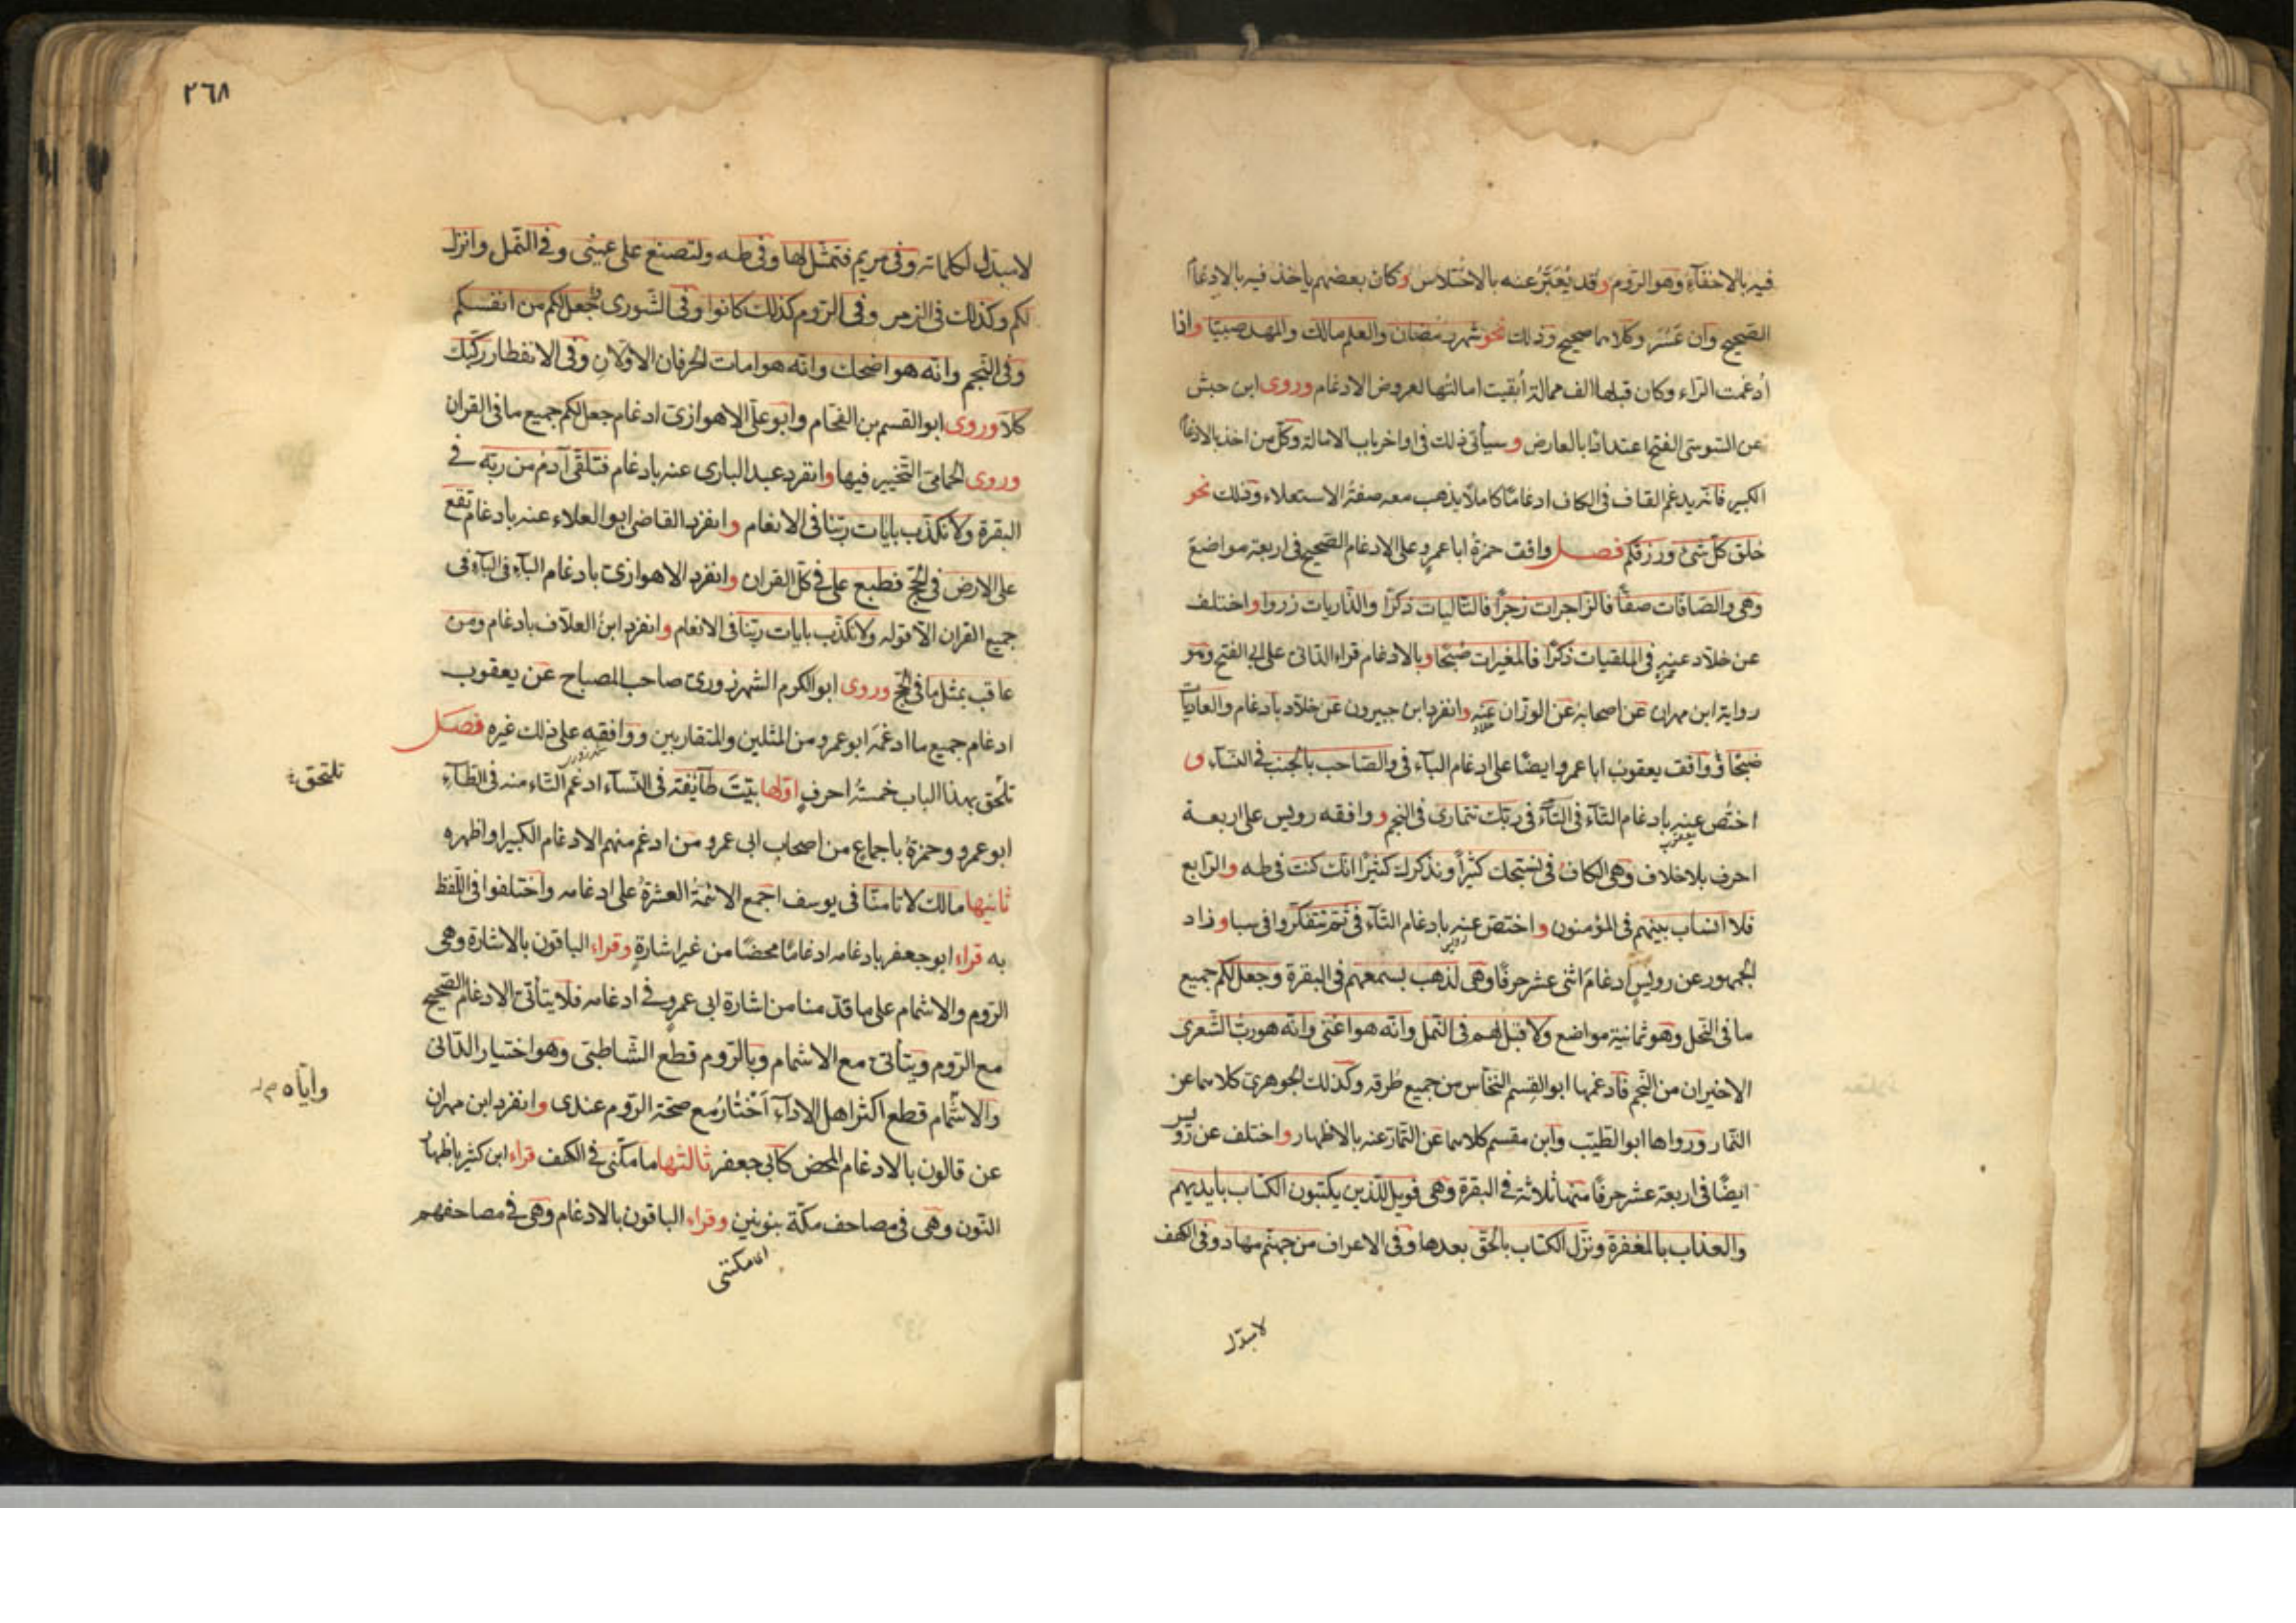 فيه بالاخفآء وهو الروم وقد يُعَبَّرُ عنه بالاختلاس وكان بعضهم ياخذ فيه بالادغام
الصحيح وان عَسُر وكلاهما صحيح وذلك نحو شهر رمضان والعلم مالك والمهد صبيّا واذا
اُدغمت الراء وكان قبلها الف ممالة اُبقيت امالتُها لعروض الادغام وروى ابن حبش
عن السّوسى الفتح اعتدادًا بالعارض وسيأتى ذلك فى اواخر باب الامالة وكلّ من اخذ بالادغام
الكبير فانّه يدغم القاف فى الكاف ادغامًا كاملًا يذهب معه صفةُ الاستعلاء وذلك نحو
خلق كلّ شئ ورزقكم فصل وافق حمزةُ ابا عمرو على الادغام الصّحيح فى اربعة مواضع
وهى والصّافّات صفّا فالزاجرات زجرًا فالتّاليات ذكرًا والذّاريات ذروا واختلف
عن خلّاد عنه فى الملقيات ذكرًا فالمغيرات صُبْحًا وبالادغام قراء الدّانى على ابى الفتح وهو
حمزة
رواية ابن مهران عن اصحابه عن الوزّان عنه وانفرد ابن جبيرون عن خلّاد بادغام والعاديات
خلاد
ضبحًا ووافق يعقوبُ ابا عمرو ايضًا على ادغام البآء فى والصّاحب بالجنب فى النسآء و
اختُص عنه بادغام التّآء فى التّآء فى ربّك تتمارى فى النجم ووافقه رويس على اربعة
يعقوب
احرف بلا خلاف وهى الكاف فى نسبّحك كثيرًا ونذكرك كثيرًا انّك كنت فى طه والرّابع
فلا انساب بينهم فى المؤمنون واختصّ عنه بادغام التّآء فى ثمّ تتفكّروا فى سبا وزاد
رويس
الجمهور عن رويسٍ ادغامَ اثنى عشر حرفًا وهى لذهب بسمعهم فى البقرة وجعل لكم جميع
ما فى النّحل وهو ثمانية مواضع ولا قبل لهم فى النّمل وانّه هو اغنى وانّه هو ربّ الشّعرى
الاخيران من النّجم فادغمها ابو القسم النخّاس من جميع طُرقه وكذلك الجوهرى كلاهما عن
التّمار ورواها ابو الطّيّب وابن مقسم كلاهما عن التّمار عنه بالاظهار واختلف عن رويس
ايضًا فى اربعة عشر حرفًا منها ثلاثة فى البقرة وهى فويل للّذين يكتبون الكتاب بايديهم
والعذاب بالمغفرة ونزّل الكتاب بالحقّ بعدها وفى الاعراف من جهنّم مهاد وفى الكهف
لا مبدّل
٢٦٨
لا مبدّل لكلماته وفى مريم فتمثّل لها وفى طه ولتصنع على عينى وفى النّمل وانزل
لكم وكذلك فى الزمر وفى الرّوم كذلك كانوا وفى الشّورى جعل لكم من انفسكم
وفى النّجم وانّه هو اضحك وانّه هو امات الحرفان الاوّلانِ وفى الانفطار ركّبك
كلّا وروى ابو القسم بن الفحّام وابو علىّ الاهوازىّ ادغام جعل لكم جميع ما فى القران
وروى الحمامىّ التّخيير فيها وانفرد عبد البارى عنه بادغام فتلقّى آدم من ربّه فى
البقرة ولا نكذّب بايات ربّنا فى الانعام وانفرد القاضى ابو العلاء عنه بادغام تقع
على الارض فى الحجّ فطبع على فى كلّ القران وانفرد الاهوازىّ بادغام البآء فى البآء فى
جميع القران الّا قوله ولا نكذّب بايات ربّنا فى الانعام وانفرد ابنُ العلّاف بادغام ومن
عاقب بمثل ما فى الحجّ وروى ابو الكرم الشهرزورى صاحب المصباح عن يعقوب
ادغام جميع ما ادغمه ابو عمرو من المثلين والمتقاربين ووافقه على ذلك غيره فصل
تلتحق بهذا الباب خمسةُ احرفٍ اوّلها بيّتَ طآئفة فى النّسآء ادغم التّاء منه فى الطّآء
تلتحق
ابو عمرو وحمزةُ باجماع من اصحاب ابى عمرو من ادغم منهم الادغام الكبير او اظهره
ثانيها مالك لا تامنّا فى يوسف اجمع الائمّةُ العشرةُ على ادغامه واختلفوا فى اللّفظ
به قراء ابو جعفر بادغامه ادغامًا محضًا من غير اشارةٍ وقراء الباقون بالاشارة وهى
الرّوم والاشمام على ما قدّمنا من اشارة ابى عمرو فى ادغامه فلا يتأتّى الادغام الصّحيح
مع الرّوم ويتأتّى مع الاشمام وبالرّوم قطع الشّاطبىّ وهو اختيار الدّانى
والاشمام قطع اكثر اهل الادآء اَخْتارُ مع صحّة الرّوم عندى وانفرد ابن مهران
وايّاه
عن قالون بالادغام المحض كابى جعفر ثالثها ما مكّنى فى الكهف قراء ابن كثير باظهار
النّون وهى فى مصاحف مكّة بنونين وقراء الباقون بالادغام وهى فى مصاحفهم